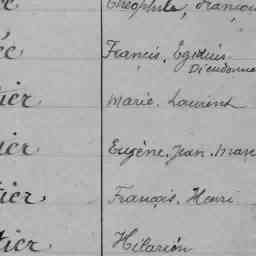 Théophile, François
Francis, Egidius
Dieudonné
tier Marie. Laurent
ier Eugène. Jean. Marie
tier François. Henri
tier Hilarion